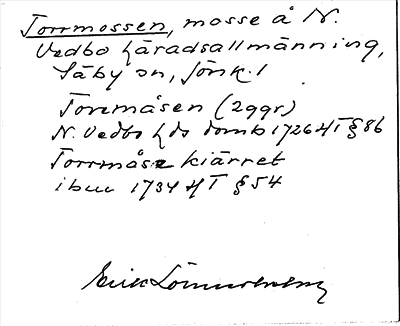 Torrmossen, mosse å N.
Vedbo häradsallmänning,
Säby sn, Jönk. l
Torrmåsen (2ggr)
N. Vedbo hds domb 1726 HT § 86
Torrmåse kiärret
ibm 1734 HT § 54
Erik Lönnerholm